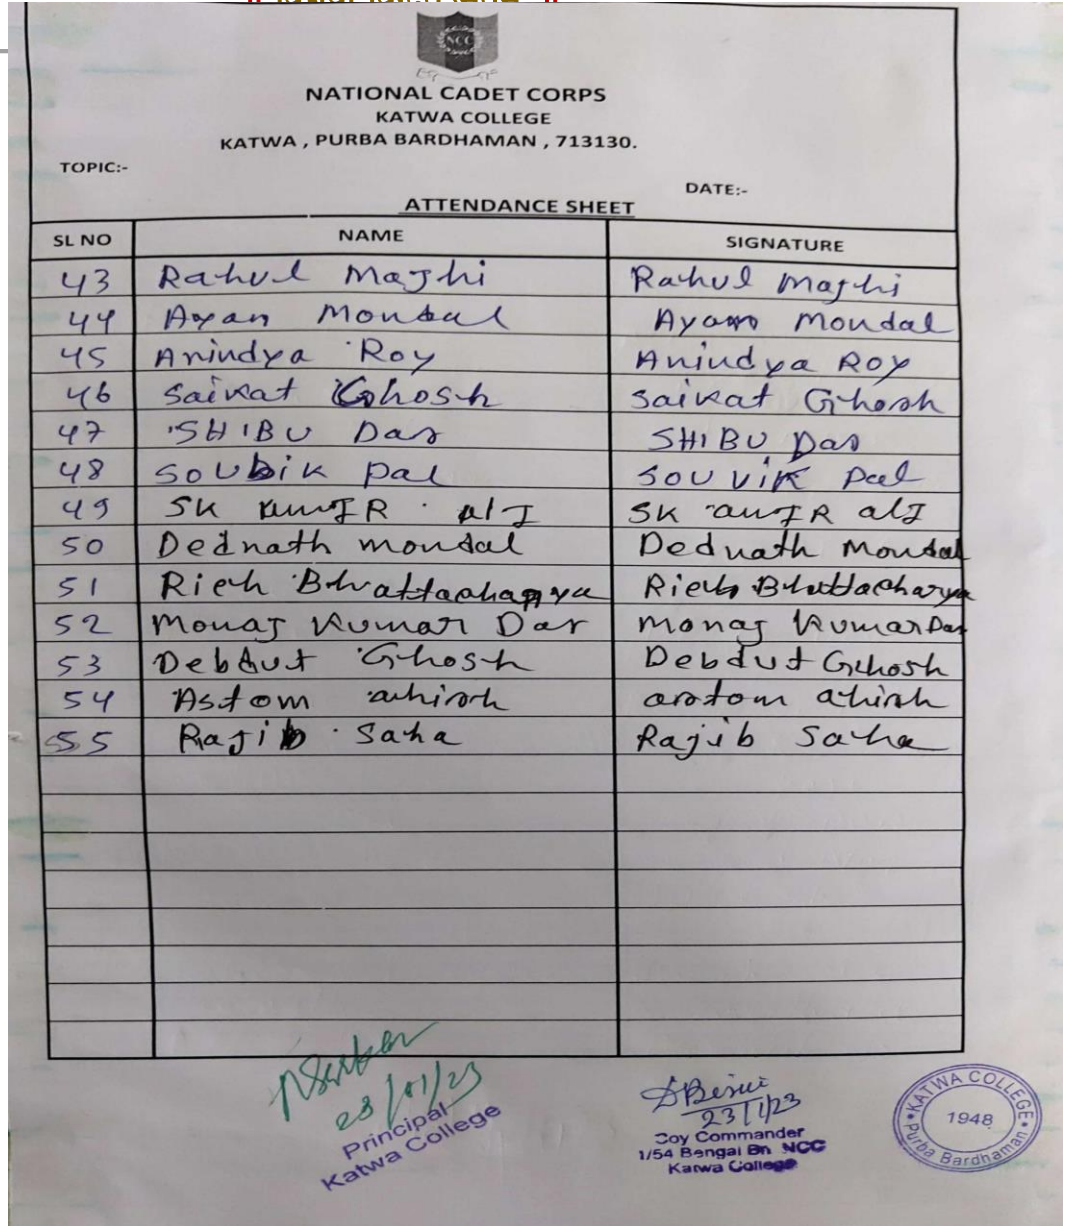 NCC
NATIONAL CADET CORPS
KATWA COLLEGE
KATWA , PURBA BARDHAMAN , 713130.
TOPIC:-
DATE:-
ATTENDANCE SHEET
SL NO NAME SIGNATURE
43 Rahul Majhi Rahul Majhi
44 Ayan Mondal Ayan Mondal
45 Anindya Roy Anindya Roy
46 Saikat Ghosh Saikat Ghosh
47 SHIBU Das SHIBU Das
48 SOUBIK pal SOUVIK pal
49 SK alI SK alI
50 Dednath mondal Dednath Mondal
51 Rich Bhattacharya Rich Bhattacharya
52 Monaj Kumar Das Monaj Kumar Das
53 Debdut Ghosh Debdut Ghosh
54 Astom
55 Rajib Saha Rajib Saha
23/01/23
Principal
Katwa College
23/1/23
Coy Commander
1/54 Bengal Bn NCC
Katwa College
KATWA COLLEGE
1948
Purba Bardhaman